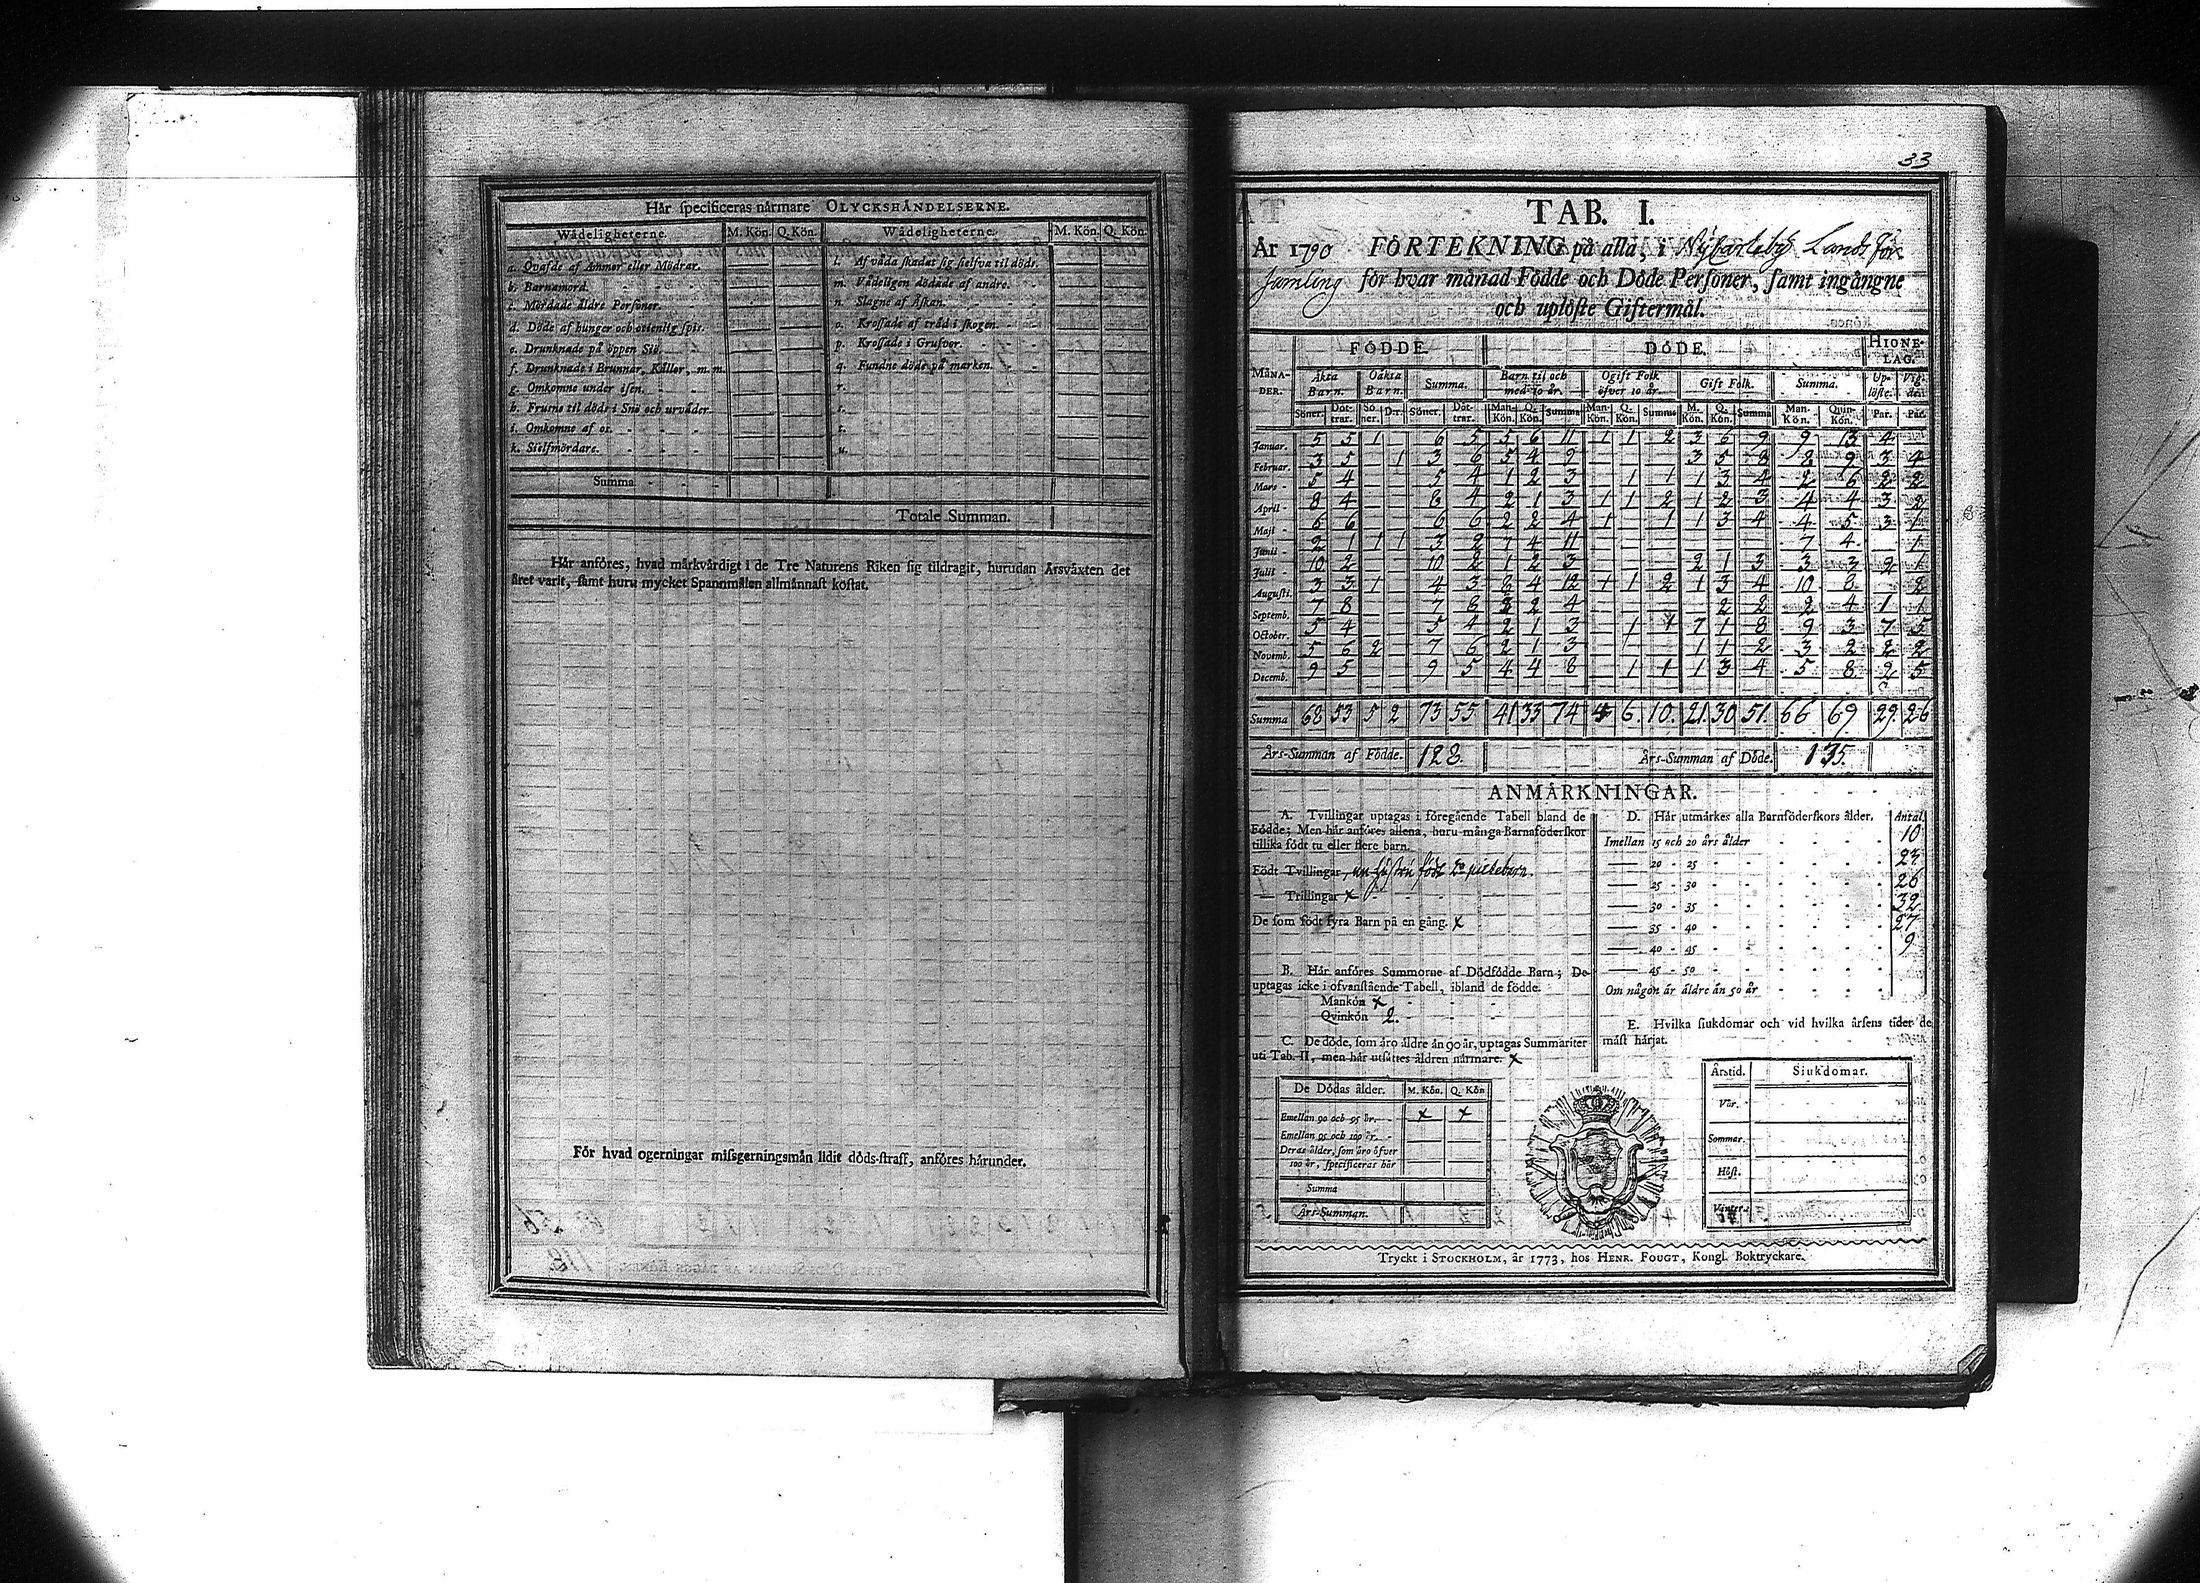 Här specificeras närmare OLYCKSHÄNDELSERNE.
Wådeligheterne. M. Kön. Q. Kön. Wådeligheterne. M. Kön. Q. Kön.
a. Qvafde af Ammor eller Mödrar. l. Af våda skadat sig sielfva til döds.
b. Barnamord. m. Vådeligen dödade af andre.
c. Mördade äldre Personer. n. Slagne af Åskan.
d. Döde af hunger och otienlig spis. o. Krossade af träd i skogen.
e. Drunknade på öppen Siö. p. Krossade i Grufvor.
f. Drunknade i Brunnar, Källor, m. m. q. Fundne döde på marken.
g. Omkomne under isen. r.
h. Frusne til döds i Snö och urväder. s.
i. Omkomne af os. t.
k. Sielfmördare. u.
Summa
Totale Summan.
Här anföres, hvad märkvärdigt i de Tre Naturens Riken sig tildragit, hurudan Årsväxten det
året varit, samt huru mycket Spannmålen allmännast kostat.
För hvad ogerningar missgerningsmän lidit döds-straff, anföres härunder.
33
TAB. I.
År 1790 FÖRTEKNING på alla, i Nykarleby Lands För
samling för hvar månad Födde och Döde Personer, samt ingångne
och uplöste Giftermål.
FÖDDE. DÖDE. HIONE-LAG.
MÅNA-DER. Äkta Barn. Oäkta Barn. Summa. Barn til och med 10 år. Ogift Folk öfver 10 år. Gift Folk. Summa. Up-löste. Vig-de.
Söner. Döt-trar. Sö-ner. D:r. Söner. Döt-trar. Man-Kön. Q. Kön. Summa Man-Kön. Q. Kön. Summa M. Kön. Q. Kön. Summa Man-Kön. Quin-Kön. Par. Par.
Januar. 5 5 1 6 5 5 6 11 1 1 2 3 6 9 9 13 4
Februar. 3 5 1 3 6 5 4 9 3 5 8 8 9 3 4
Mars 5 4 5 4 1 2 3 1 1 1 3 4 2 6 2 2
April 8 4 8 4 2 1 3 1 1 2 1 2 3 4 4 3 2
Maji 6 6 6 6 2 2 4 1 1 1 3 4 4 5 3 1
Junii 2 1 1 1 3 2 7 4 11 7 4 1
Julii 10 2 10 2 1 2 3 2 1 3 3 3 2 1
Augusti. 3 3 1 4 3 8 4 12 1 1 2 1 3 4 10 8 2
Septemb. 7 8 7 8 2 2 4 2 2 2 4 1 1
October. 5 4 5 4 2 1 3 1 1 7 1 8 9 3 7 5
Novemb. 5 6 2 7 6 2 1 3 1 1 2 3 2 2 2
Decemb. 9 5 9 5 4 4 8 1 1 1 3 4 5 8 2 5
Summa 68 53 5 2 73 55 41 33 74 4 6. 10. 21. 30 51. 66 69 29. 26
Års-Summan af Födde. 128. Års-Summan af Döde. 135.
ANMÄRKNINGAR.
A. Tvillingar uptagas i föregående Tabell bland de
Födde; Men här anföres allena, huru många Barnaföderskor
tillika födt tu eller flere barn.
Födt Tvillingar, en hustru födt 2:ne pickebarn.
Trillingar x
De som födt fyra Barn på en gång. x
B. Här anföres Summorne af Dödfödde Barn; De
uptagas icke i ofvanstående Tabell, ibland de födde.
Mankön x
Qvinkön 2.
C. De döde, som äro äldre än 90 år, uptagas Summariter
uti Tab. II, men här utsättes åldren närmare. x
De Dödas ålder. M. Kön. Q. Kön
Emellan 90 och 95 år. x x
Emellan 95 och 100 år.
Deras ålder, som äro öfver
100 år, specificeras här
Summa
Års-Summan.
D. Här utmärkes alla Barnföderskors ålder. Antal
Imellan 15 och 20 års ålder 10
20 - 25 23
25 - 30 26
30 - 35 32
35 - 40 27
40 - 45 9
45 - 50
Om någon är äldre än 50 år
E. Hvilka siukdomar och vid hvilka årsens tider de
mäst härjat.
Årstid. Siukdomar.
Vår.
Sommar.
Höst.
Vinter.
Tryckt i STOCKHOLM, år 1773, hos HENR. FOUGT, Kongl. Boktryckare.